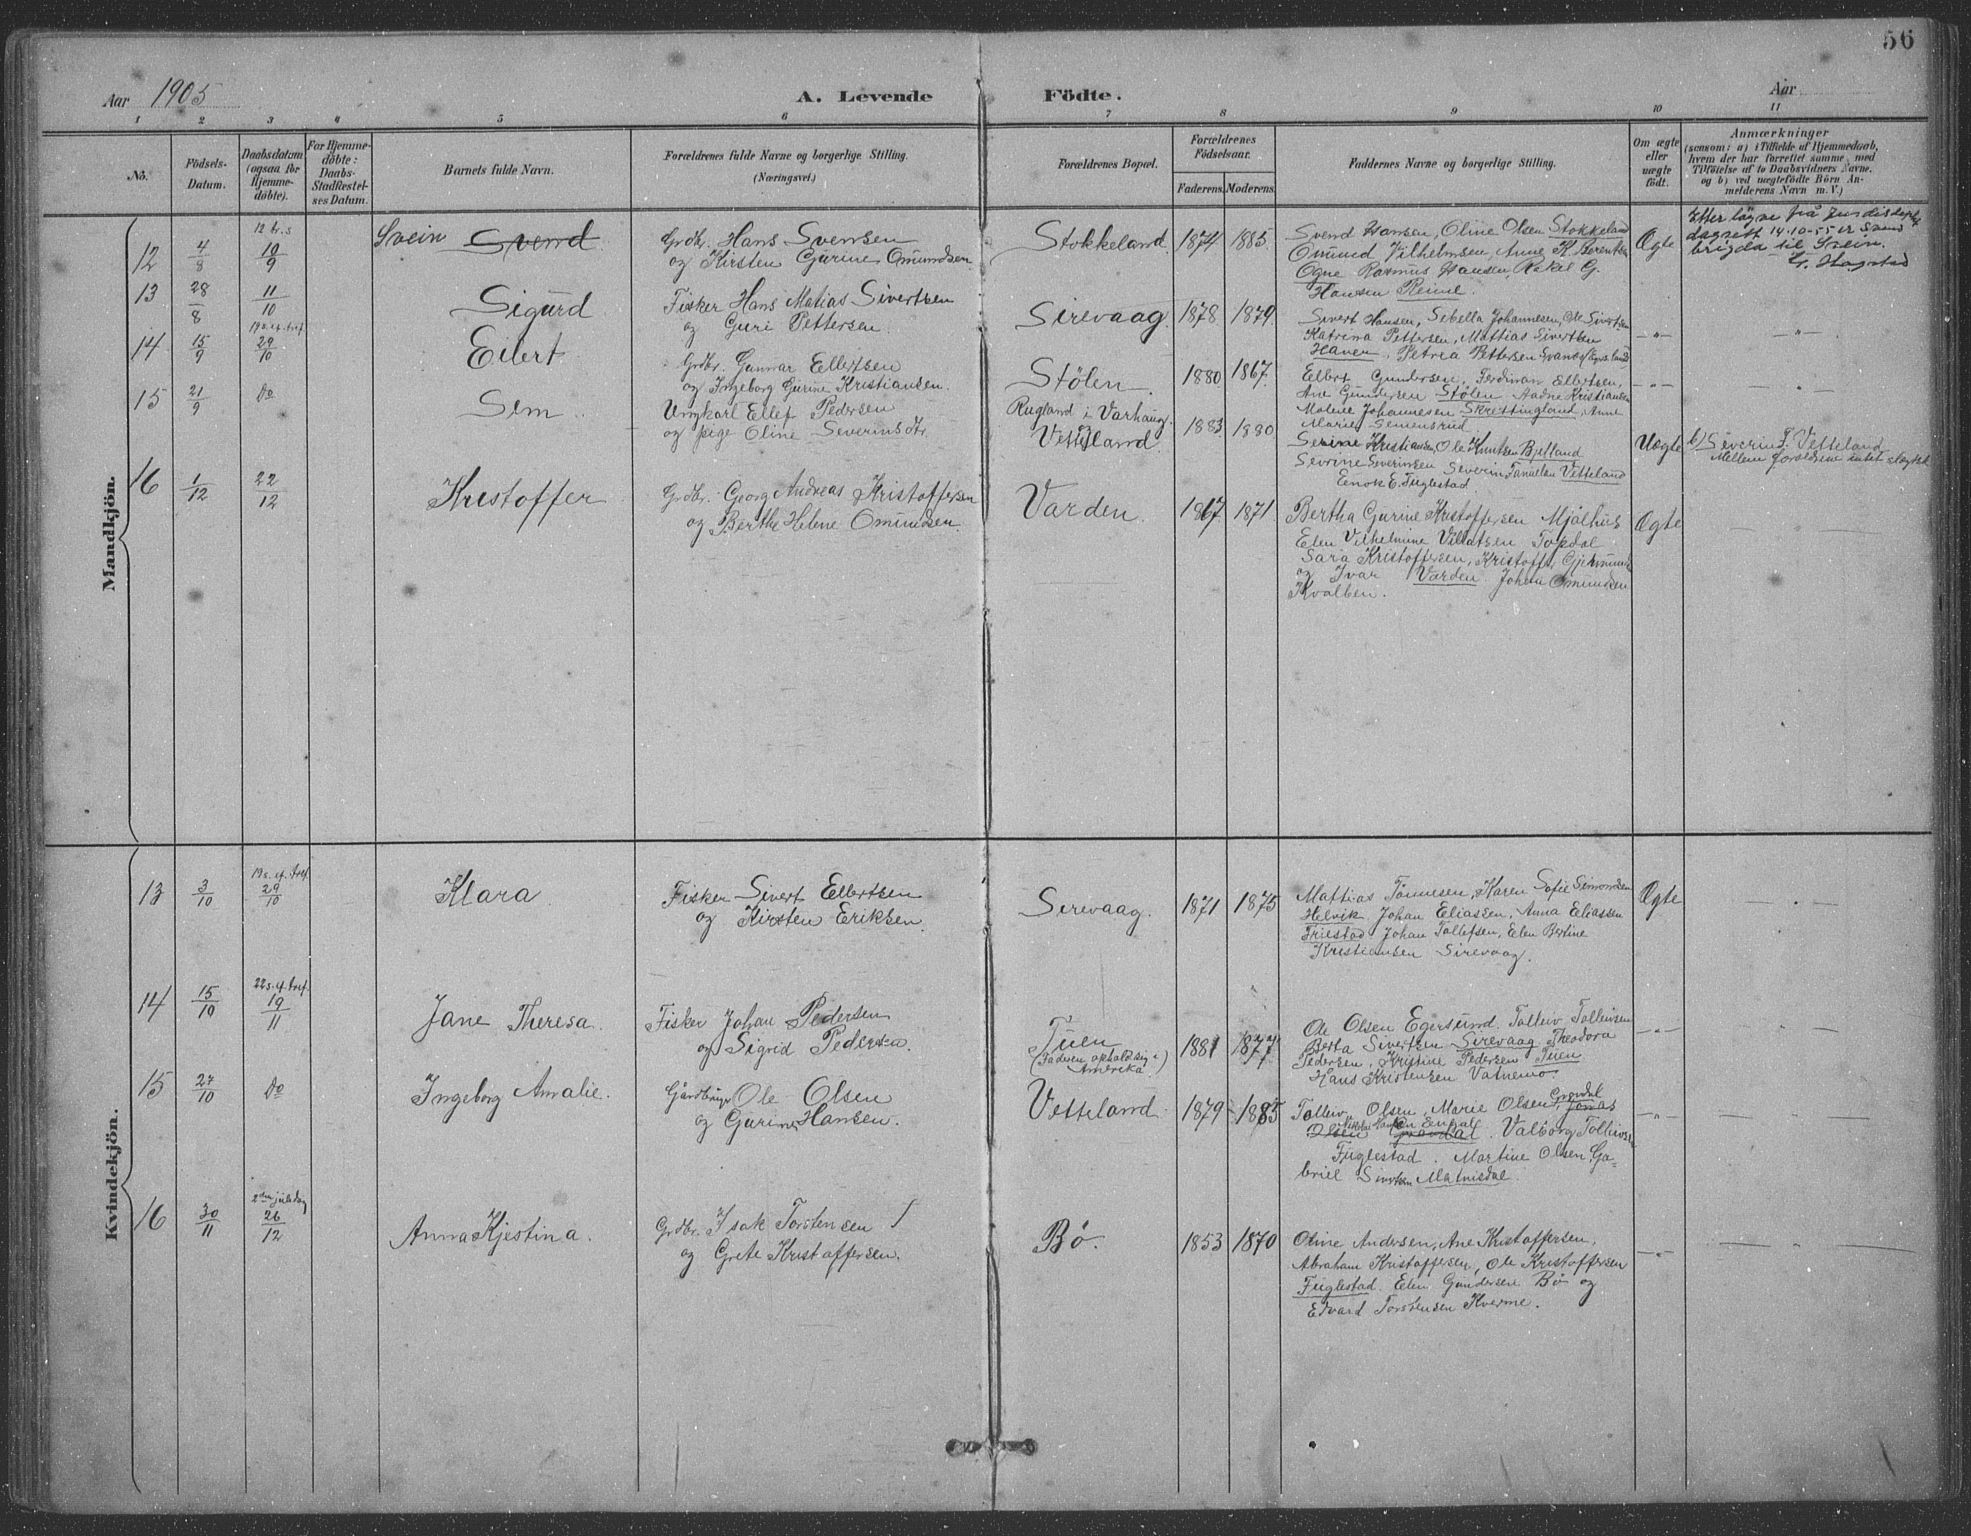 56
Aar 1905
A. Levende Födte.
Aar
1 2 3 4 5 6 7 8 9 10 11
No.
Födsels-
Datum.
Daabsdatum
(ogsaa for
Hjemme-
döbte).
For Hjemme-
döbte:
Daabs-
Stadfæstel-
ses Datum.
Barnets fulde Navn.
Forældrenes fulde Navne og borgerlige Stilling.
(Næringsvei.)
Forældrenes Bopæl.
Forældrenes
Födselsaar.
Faderens. Moderens.
Faddernes Navne og borgerlige Stilling.
Om ægte
eller
uægte
födt.
Anmærkninger
(saasom: a) i Tilfælde af Hjemmedaab,
hvem der har forrettet samme, med
Tilföielse af to Daabsvidners Navne,
og b) ved uægtefödte Börn An-
melderens Navn m. V.)
Mandkjön.
12 4/8 12 s. 10/9
Svein Svend
Grdbr. Hans Svensen
og Kirsten Gurine Omundsen
Stokkeland 1874 1885.
Svend Hansen, Oline Olsen Stokkeland
Omund Vilhelmsen, Anne K. Berentsen
Ogne Rasmus Hansen, Rakel G.
Hansen Reime.
Ægte
Etter løyve frå
dagsett 14-10-55 er Svend
brigda til Svein.
13 28/8 11/10
Sigurd
Fisker Hans Matias Sivertsen
og Guri Pettersen.
Sirevaag 1878 1879.
Sivert Hansen, Sebella Johannesen, Ole Sivertsen
Katrina Pettersen, Mattias Sivertsen
Haven, Petrea Pettersen
-"-
14 15/9 19 s. ef. tref. 29/10
Eilert
Grdbr. Gunnar Ellertsen
og Ingeborg Gurine Kristiansen.
Stølen 1880 1867.
Eilert Gundersen, Ferdinan Elertsen,
Ane Gundersen Stølen Aadne Kristiansen
Malene Johannesen Skrettingland, Anne
Marie
-"-
15 21/9 Do
Sem
Ungkarl Ellef Pedersen
og pige Oline Severinsdtr.
Rugland i Varhaug
Vetteland 1883 1880
Serine Kristiansen, Ole Knutsen Bjelland
Sevrine Severinsen Severin Vetteland
Enok E. Fuglestad.
Uægte
b) Severin Vetteland
Mellem forældrene intet slegtsk.
16 1/12 22/12
Kristoffer
Grdbr. Georg Andreas Kristoffersen
og Berthe Helene Omundsen.
Varden 1867. 1871
Bertha Gurine Kristoffersen Mjølhus
Elen Vilhelmine Topdal
Sara Kristoffersen, Kristoffer, Gjermund
og Ivar Varden. Johan Omundsen
Kvalben.
Ægte
Kvindekjön.
13 3/10 19 s. ef. tref. 29/10
Klara
Fisker Sivert Elertsen
og Kirsten Eriksen.
Sirevaag. 1871 1875
Mattias Tønnesen, Karen Sofie Simondsen
Helvik Johan Eliassen, Anna Eliassen
Friestad Johan Tollefsen, Elen Bertine
Kristiansen Sirevaag.
Ægte
14 15/10 22 s. ef. tref. 19/11
Jane Theresa.
Fisker Johan Pedersen
og Sigrid Pedersen.
Tuen
(Faderen opholdt sig i
Amerika.)
1881 1877
Ole Olsen Egersund. Tolleiv Tolleivsen
Berta Sivertsen Sirevaag Theodora
Pedersen, Kristine Pedersen Tuen
Hans Kristensen Vatnemo.
-"-
15 27/10 Do
Ingeborg Amalie.
Gårdbruger Ole Olsen
og Gurine Hansen.
Vetteland 1879 1885
Tolleiv Olsen, Marie Olsen, Grøndal Jonas
Olsen Nikolai Hansen Grøndal. Valborg Tolleivsen
Fuglestad. Martine Olsen, Ga-
briel Sivertsen Matnisdal.
-"-
16 30/11 2den juledag 26/12
Anna Kjestina.
Grdbr. Isak Torstensen
og Grete Kristoffersen.
Bø. 1853 1870
Oline Andersen, Ane Kristoffersen,
Abraham Kristoffersen, Ole Kristoffersen
Fuglestad. Elen Gundersen Bø og
Edvard Torstensen Kverme.
-"-